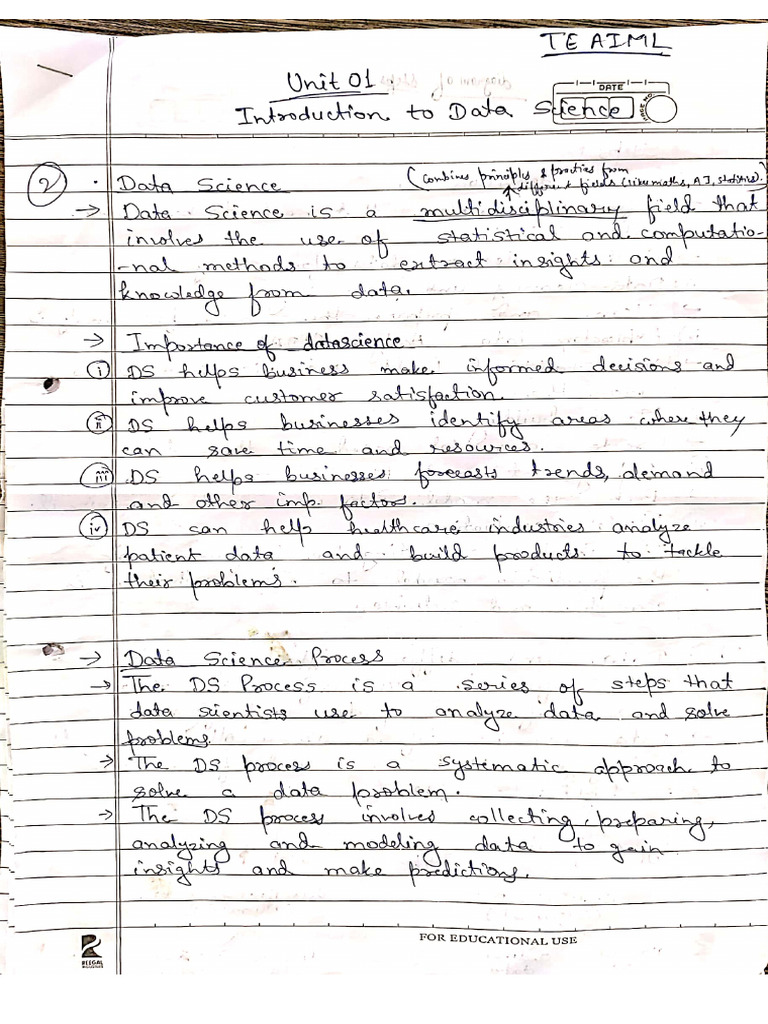 TE AIML
Unit 01
DATE
Introduction to Data Science
PAGE NO.
2
(Combines principles & practices from
different fields (like maths, AI, statistics).)
Data Science
→ Data Science is a multidisciplinary field that
involves the use of statistical and computatio-
-nal methods to extract insights and
knowledge from data.
→ Importance of datascience
i DS helps business make informed decisions and
improve customer satisfaction.
ii DS helps businesses identify areas where they
can save time and resources.
iii DS helps businesses forecasts trends, demand
and other imp. factors.
iv DS can help healthcare industries analyze
patient data and build products to tackle
their problems.
→ Data Science Process
→ The DS Process is a series of steps that
data scientists use to analyze data and solve
problems.
→ The DS process is a systematic approach to
solve a data problem.
→ The DS process involves collecting, preparing,
analyzing and modeling data to gain
insights and make predictions.
FOR EDUCATIONAL USE